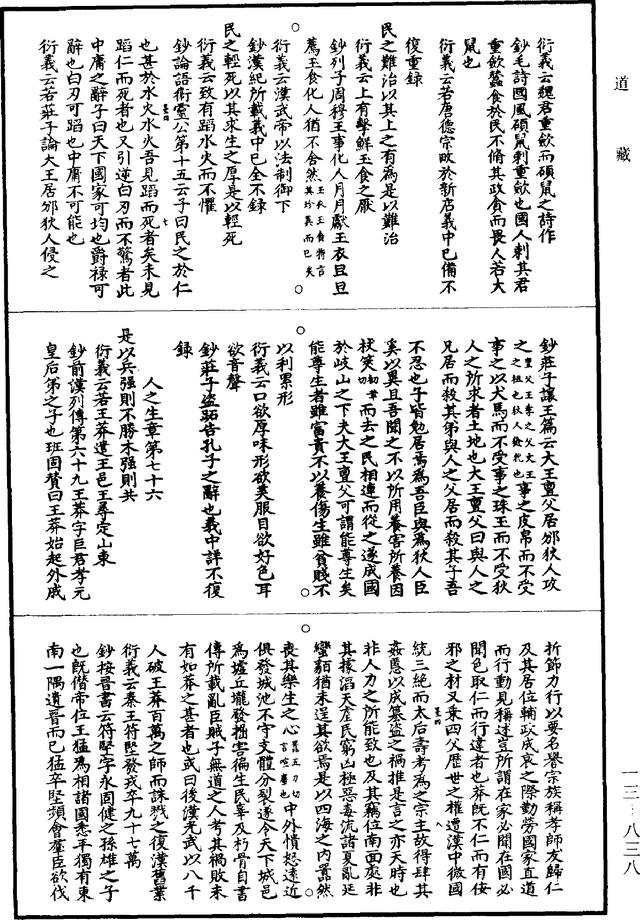 道藏
衍義云魏君重歛而碩鼠之詩作
鈔毛詩國風碩鼠刺重歛也國人刺其君
重歛蠶食於民不脩其政貪而畏人若大
鼠也
衍義云若唐德宗畋於新店義中已備不
復重録
民之難治以其上之有為是以難治
衍義云上有擊鮮玉食之厭
鈔列子周穆王事化人月月獻玉衣旦旦
薦玉食化人猶不舍然玉衣玉食特言其珍異而已矣
衍義云漢武帝以法制御下
鈔漢紀所載義中已全不録
民之輕死以其求生之厚是以輕死
衍義云致有蹈水火而不懼
鈔論語衛靈公第十五云子曰民之於仁
也甚於水火水火吾見蹈而死者矣未見
蹈仁而死者也又引逆白刃而不驚者此
中庸之辭子曰天下國家可均也爵禄可
辭也白刃可蹈也中庸不可能也
衍義云若莊子論大王居邠狄人侵之
鈔莊子讓王篇云大王亶父居邠狄人攻
之亶父王季之父文王之祖也狄人獫狁也事之皮帛而不受
事之以犬馬而不受事之珠玉而不受狄
人之所求者土地也大王亶父曰與人之
兄居而殺其弟與人之父居而殺其子吾
不忍也子皆勉居焉為吾臣與為狄人臣
奚以異且吾聞之不以所用養害所養因
杖筴初革而去之民相連而從之遂成國
於岐山之下夫大王亶父可謂能尊生矣
能尊生者雖富貴不以養傷生雖貧賤不
以利累形
衍義云口欲厚味形欲美服目欲好色耳
欲音聲
鈔莊子盜跖告孔子之辭也義中詳不復
録
人之生章第七十六
是以兵强則不勝木强則共
衍義云若王莽遣王邑王尋定山東
鈔前漢列傳第六十九王莽字巨君孝元
皇后弟之子也班固賛曰王莽始起外戚
折節力行以要名譽宗族稱孝師友歸仁
及其居位輔政成哀之際勤勞國家直道
而行動見稱述豈所謂在家必聞在國必
聞色取仁而行違者也莽既不仁而有佞
邪之材又乘四父歷世之權遭漢中微國
統三絶而太后壽考為之宗主故得肆其
姦慝以成簒盜之禍推是言之亦天時也
非人力之所能致也及其竊位南面處非
其據滔天虐民窮凶極惡毒流諸夏亂延
蠻貊猶未逞其欲焉是以四海之内囂然
喪其樂生之心中外憤怒遠近
俱發城池不守支體分裂遂令天下城邑
為墟丘壠發掘害徧生民辜及朽骨自書
傳所載亂臣賊子無道之人考其禍敗未
有如莽之甚者也或曰後漢光武以八千
人破王莽百萬之師而誅戮之復漢舊業
衍義云秦王符堅發戎卒九十七萬
鈔按晉書云符堅字永固健之孫雄之子
也既僭帝位王猛為相諸國悉平獨有東
南一隅遺晉而已猛卒堅頭會羣臣欲伐
一三-八三八